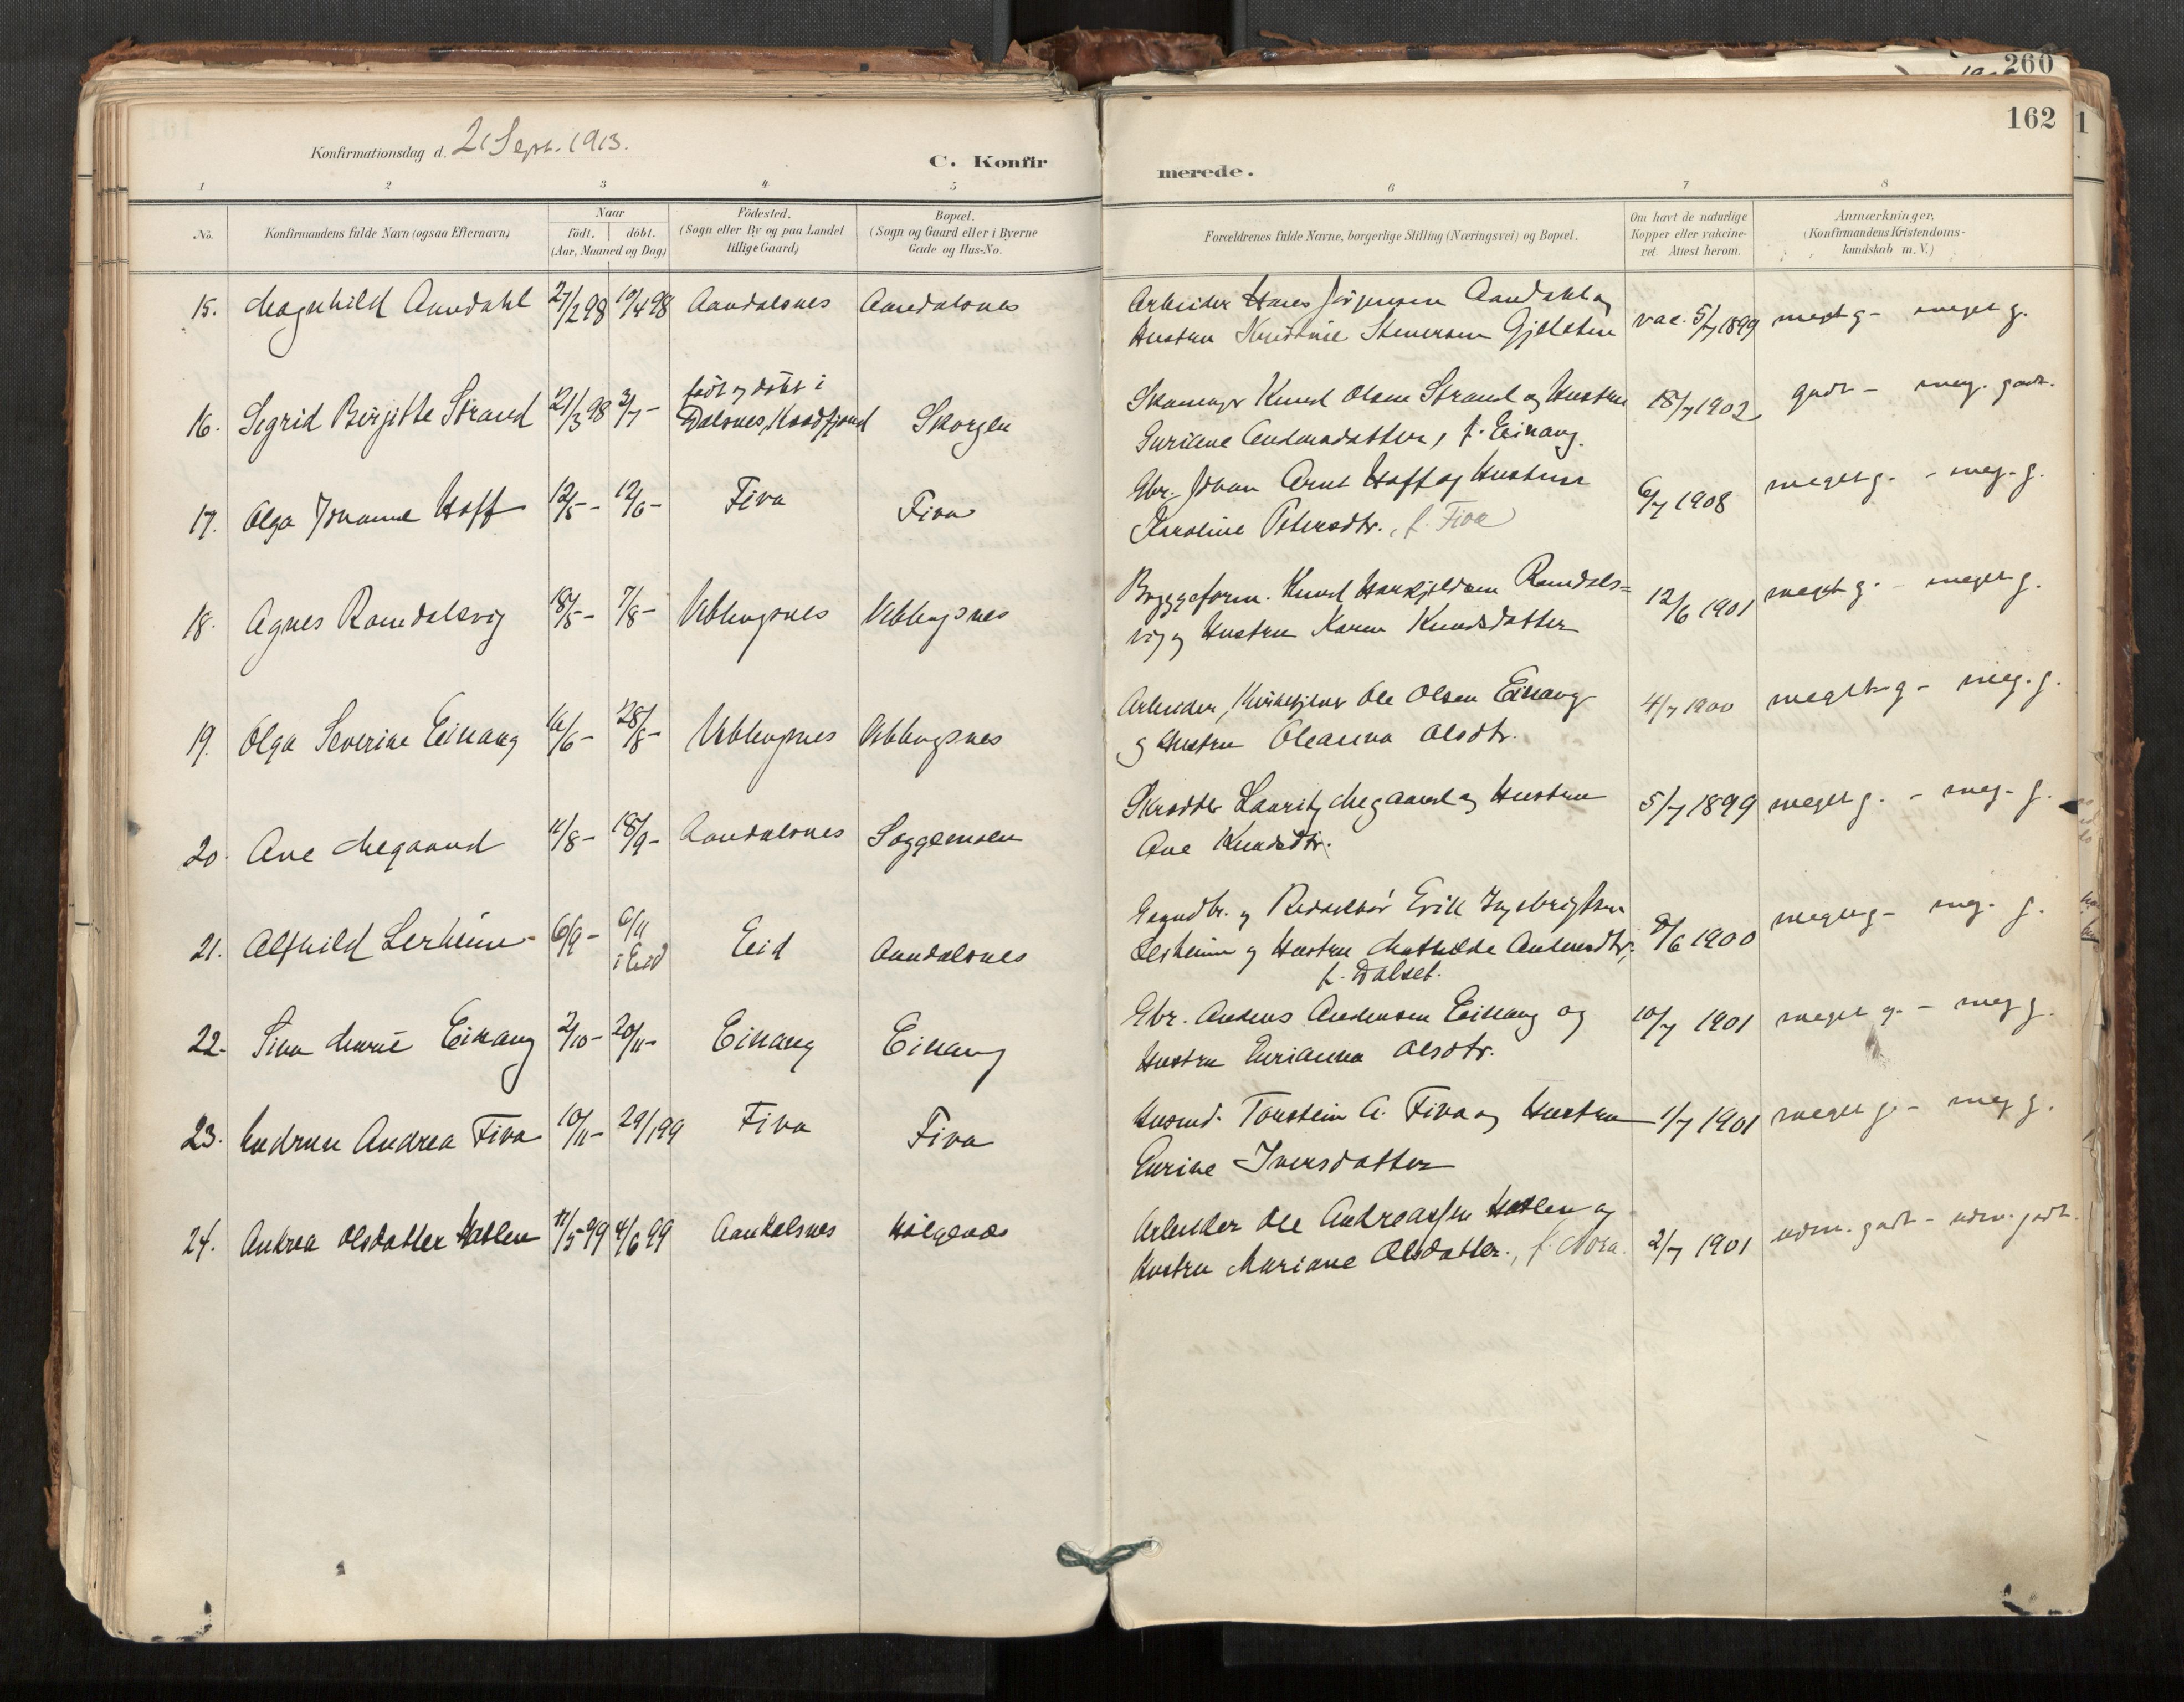 260
162
Konfirmationsdag d. 21 Sept. 1913.
C. Konfirmerede.
1 2 3 4 5 6 7 8
No. Konfirmandens fulde Navn (ogsaa Efternavn) Naar födt. döbt. (Aar, Maaned og Dag) Födested. (Sogn eller By og paa Landet tillige Gaard) Bopæl. (Sogn og Gaard eller i Byerne Gade og Hus-No. Forældrenes fulde Navne, borgerlige Stilling (Næringsvei) og Bopæl. Om havt de naturlige Kopper eller vakcineret. Attest herom. Anmærkninger. (Konfirmandens Kristendomskundskab m. V.)
15. Magnhild Aandahl 27/2 98 10/4 98 Aandalsnes Aandalsnes Arbeider Hans Jörgensen Aandahl og vac. 5/7 1899 meget g - meget g.
Hustru Kristine Stenersen Gjelsten
16. Sigrid Birgitte Strand 21/3 98 3/7 - födt og döbt i Dalsnes, Skorgen Skomager Knud Olsen Strand og Hustru 18/7 1902 godt - meg. godt.
Guriane Andersdatter, f. Einang.
17. Olga Johanne Hoff 12/5 - 12/6 - Fiva Fiva Gbr. Johan Arnt Hoff og Hustru 6/7 1908 meget g. - meg. g.
Karoline Petersdtr., f. Fiva
18. Agnes Romdalsvig 18/5 - 7/8 - Veblungsnes Veblungsnes Byggeform. Knud Romdals= 12/6 1901 meget g. - meget g.
vig og Hustru Karen Knudsdatter
19. Olga Severine Einang 16/6 - 28/8 - Veblungsnes Veblungsnes Arbeider, Kirketjener Ole Olsen Einang 4/7 1900 meget g - meg. g.
og Hustru Oleanna Olsdtr.
20. Ane Megaard 11/8 - 18/9 - Aandalsnes Soggemoen Skrædder Lauritz Megaard og Hustru 5/7 1899 meget g. - meg. g.
Ane Knudsdtr.
21. Alfhild Lerheim 6/9 - 6/11 i Eid Eid Aandalsnes Gaardbr. og Redaktör Erik Ingebrigtsen 8/6 1900 meget g - meg. g.
Lerheim og Hustru Mathilde Andersdtr,
f. Dalset.
22. Sina Marie Einang 2/10 - 20/11 - Einang Einang Gbr. Anders Andersen Einang og 10/7 1901 meget g. - meg g.
Hustru Gurianna Olsdtr.
23. Gudrun Andrea Fiva 10/11 - 29/1 99 Fiva Fiva Husmd. Torstein A. Fiva og Hustru 1/7 1901 meget g. - meg g.
Gurine Iversdatter
24. Andrea Olsdatter Hatlen 11/5 99 4/6 99 Aandalsnes Helgenæs Arbeider Ole Andreassen Hatlen og 2/7 1901 udm. godt - udm. godt.
Hustru Mariane Olsdatter., f. Nora.